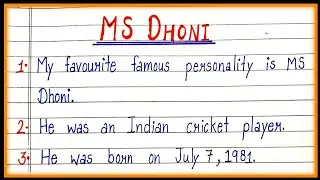 MS DHONI
1. My favourite famous personality is MS
Dhoni.
2. He was an Indian cricket player.
3. He was born on July 7, 1981.